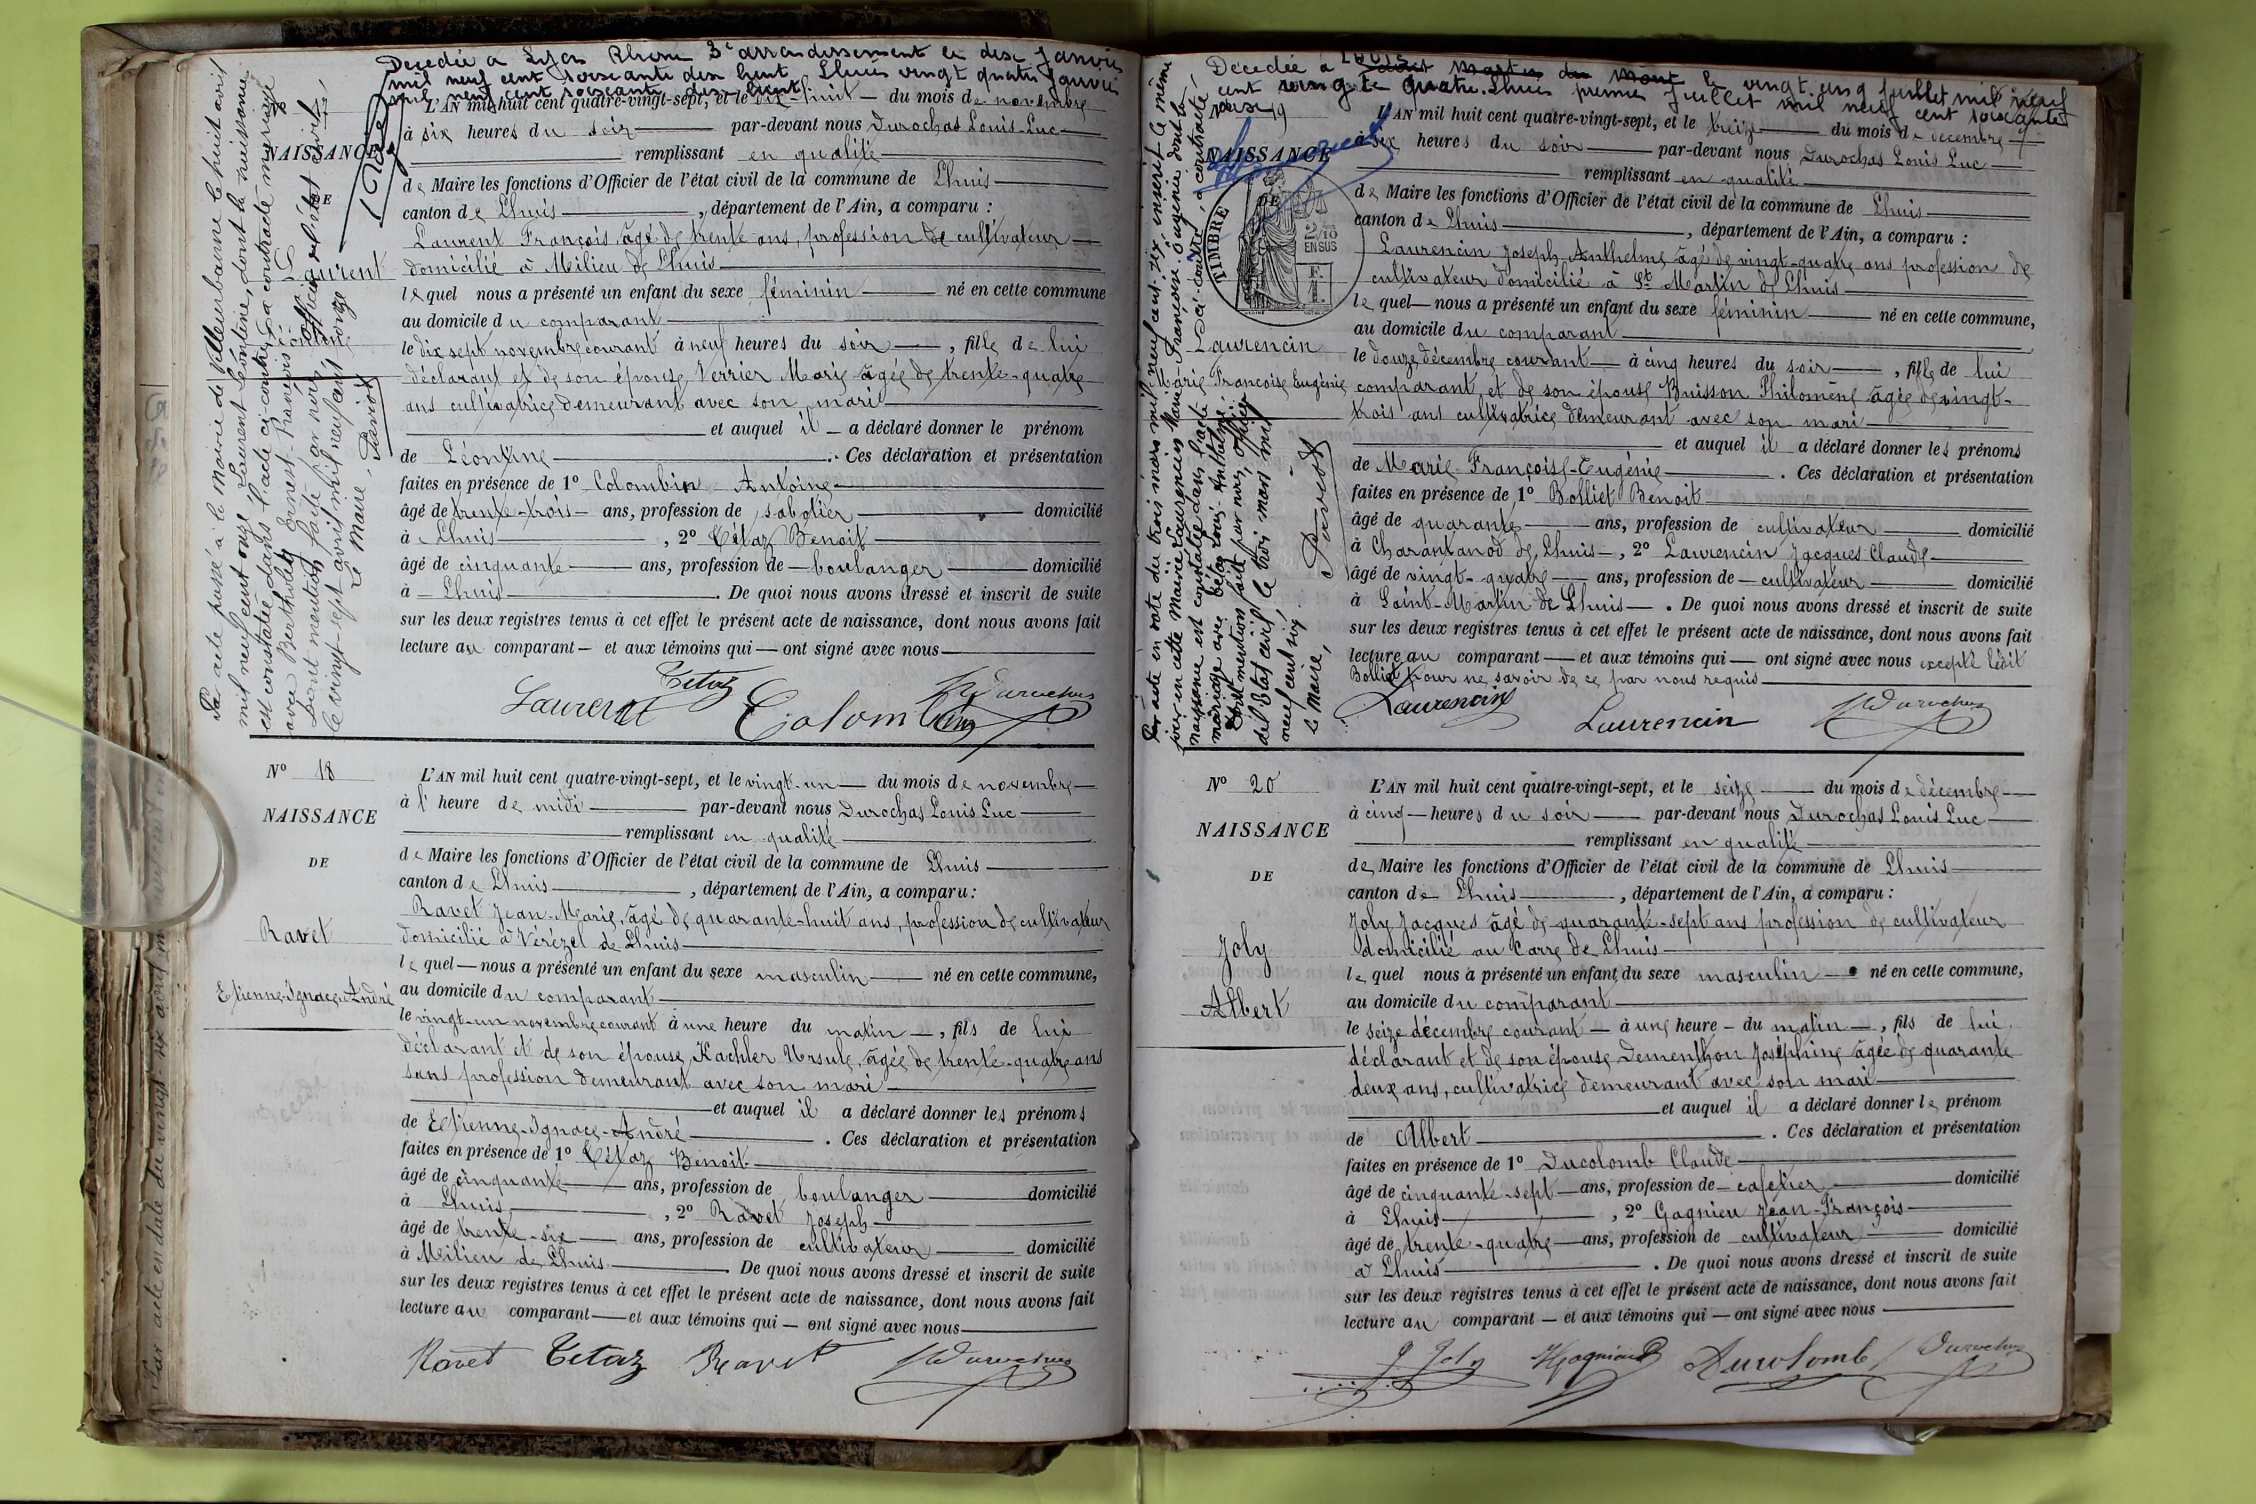 Decedée à Lyon Rhone 3e arrondissement le dix janvier
mil neuf cent soixante dix huit. Lhuis vingt quatre janvier
mil neuf cent soixante dix huit
L'AN mil huit cent quatre-vingt-sept, et le dix-huit du mois de novembre
à six heures du soir par-devant nous Durochas Louis-Luc
remplissant en qualité
de Maire les fonctions d'Officier de l'état civil de la commune de Lhuis
canton de Lhuis, département de l'Ain, a comparu :
Laurent François, âgé de trente ans, profession de cultivateur
domicilié à Milieu de Lhuis
lequel nous a présenté un enfant du sexe féminin né en cette commune
au domicile du comparant
le dix sept novembre courant à neuf heures du soir, fille de lui
déclarant et de son épouse Verrier Marie âgée de trente-quatre
ans cultivatrice demeurant avec son mari
et auquel il a déclaré donner le prénom
de Léontine. Ces déclaration et présentation
faites en présence de 1° Colombin Antoine
âgé de trente-trois ans, profession de sabotier domicilié
à Lhuis, 2° Tétaz Benoit
âgé de cinquante ans, profession de boulanger domicilié
à Lhuis. De quoi nous avons dressé et inscrit de suite
sur les deux registres tenus à cet effet le présent acte de naissance, dont nous avons fait
lecture au comparant et aux témoins qui ont signé avec nous
Laurent Tetaz Colombin Durochas
NAISSANCE
DE
Laurent
Léontine
Par acte passé à la mairie de Villeurbanne le huit avril
mil neuf cent onze Laurent Léontine, dont la naissance
est constatée dans l'acte ci-contre, a contracté mariage
avec Berthulet Ernest François
Dont mention faite par nous officier de l'état civil
le vingt-sept avril mil neuf cent onze
Le Maire,
N° 18
NAISSANCE
DE
Ravet
Etienne-Ignace-André
L'AN mil huit cent quatre-vingt-sept, et le vingt-un du mois de novembre
à l'heure de midi par-devant nous Durochas Louis Luc
remplissant en qualité
de Maire les fonctions d'Officier de l'état civil de la commune de Lhuis
canton de Lhuis, département de l'Ain, a comparu :
Ravet Jean-Marie, âgé de quarante-huit ans, profession de cultivateur
domicilié à Vérézel de Lhuis
lequel nous a présenté un enfant du sexe masculin né en cette commune,
au domicile du comparant
le vingt-un novembre courant à une heure du matin, fils de lui
déclarant et de son épouse Kachler Ursule, âgée de trente-quatre ans
sans profession demeurant avec son mari
et auquel il a déclaré donner les prénoms
de Etienne-Ignace-André. Ces déclaration et présentation
faites en présence de 1° Tétaz Benoit
âgé de cinquante ans, profession de boulanger domicilié
à Lhuis, 2° Ravet Joseph
âgé de trente-six ans, profession de cultivateur domicilié
à Milieu de Lhuis. De quoi nous avons dressé et inscrit de suite
sur les deux registres tenus à cet effet le présent acte de naissance, dont nous avons fait
lecture au comparant et aux témoins qui ont signé avec nous
Ravet Tetaz Ravet Durochas
Decedée à Lhuis le vingt cinq juillet mil neuf
cent soixante quatre. Lhuis premier juillet mil neuf cent soixante
N° 19
NAISSANCE
DE
TIMBRE
2/10
EN SUS
Laurencin
Marie Françoise Eugénie
Par acte en date du trois mars mil neuf cent six, inscrit le même
jour en cette Mairie Laurencin Marie-Françoise Eugénie dont la
naissance est constatée dans l'acte ci-contre, a contracté
mariage avec Louis Anthelme
Dont mention faite par nous, officier
de l'état civil le trois mars mil
neuf cent six
Le Maire,
L'AN mil huit cent quatre-vingt-sept, et le treize du mois de décembre
à six heures du soir par-devant nous Durochas Louis Luc
remplissant en qualité
de Maire les fonctions d'Officier de l'état civil de la commune de Lhuis
canton de Lhuis, département de l'Ain, a comparu :
Laurencin Joseph-Anthelme âgé de vingt-quatre ans profession de
cultivateur domicilié à St Martin de Lhuis
lequel nous a présenté un enfant du sexe féminin né en cette commune,
au domicile du comparant
le douze décembre courant à cinq heures du soir, fille de lui
comparant et de son épouse Buisson Philomène âgée de vingt-
trois ans cultivatrice demeurant avec son mari
et auquel il a déclaré donner les prénoms
de Marie-Françoise-Eugénie. Ces déclaration et présentation
faites en présence de 1° Bolliet Benoit
âgé de quarante ans, profession de cultivateur domicilié
à Charantanod de Lhuis, 2° Laurencin Jacques Claude
âgé de vingt-quatre ans, profession de cultivateur domicilié
à Saint-Martin de Lhuis. De quoi nous avons dressé et inscrit de suite
sur les deux registres tenus à cet effet le présent acte de naissance, dont nous avons fait
lecture au comparant et aux témoins qui ont signé avec nous excepté ledit
Bolliet pour ne savoir de ce par nous requis
Laurencin Laurencin Durochas
N° 20
NAISSANCE
DE
Joly
Albert
L'AN mil huit cent quatre-vingt-sept, et le seize du mois de décembre
à cinq heures du soir par-devant nous Durochas Louis Luc
remplissant en qualité
de Maire les fonctions d'Officier de l'état civil de la commune de Lhuis
canton de Lhuis, département de l'Ain, a comparu :
Joly Jacques âgé de quarante-sept ans profession de cultivateur
domicilié au Carre de Lhuis
lequel nous a présenté un enfant du sexe masculin né en cette commune,
au domicile du comparant
le seize décembre courant à une heure du matin, fils de lui
déclarant et de son épouse Dementhon Joséphine âgée de quarante
deux ans, cultivatrice demeurant avec son mari
et auquel il a déclaré donner le prénom
de Albert. Ces déclaration et présentation
faites en présence de 1° Ducolomb Claude
âgé de cinquante-sept ans, profession de cafetier domicilié
à Lhuis, 2° Gagnieu Jean-François
âgé de trente-quatre ans, profession de cultivateur domicilié
à Lhuis. De quoi nous avons dressé et inscrit de suite
sur les deux registres tenus à cet effet le présent acte de naissance, dont nous avons fait
lecture au comparant et aux témoins qui ont signé avec nous
J Joly Gagnieu Ducolomb Durochas